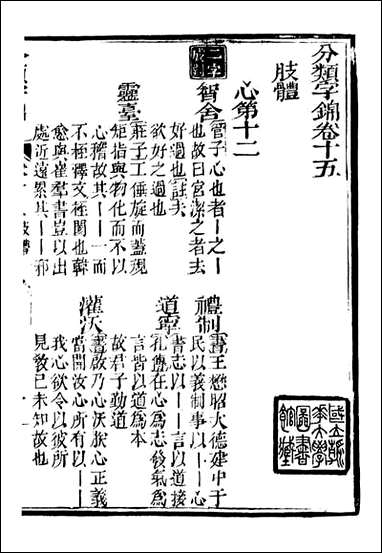 分類字錦卷十五
肢體
心第十二
二字
成對
智舍
管子心也者｜之｜
也故曰宮潔之者去
好過也〔註〕夫
欲好之過也
禮制
書王懋昭大德建中于
民以義制事以｜制心
靈臺
莊子工倕旋而蓋規
矩指與物化而不以
心稽故其｜｜一而
不桎釋文桎閡也韓
愈與崔羣書豈以出
處近遠累其｜｜邪
道寧
書志以｜｜言以道接
孔傳在心為志發氣為
言皆以道為本
故君子勤道
灌沃
書啟乃心沃朕心正義
當開汝心所有以｜｜
我心欲令以彼所
見敎己未知故也
國立
大學
圖書
館藏